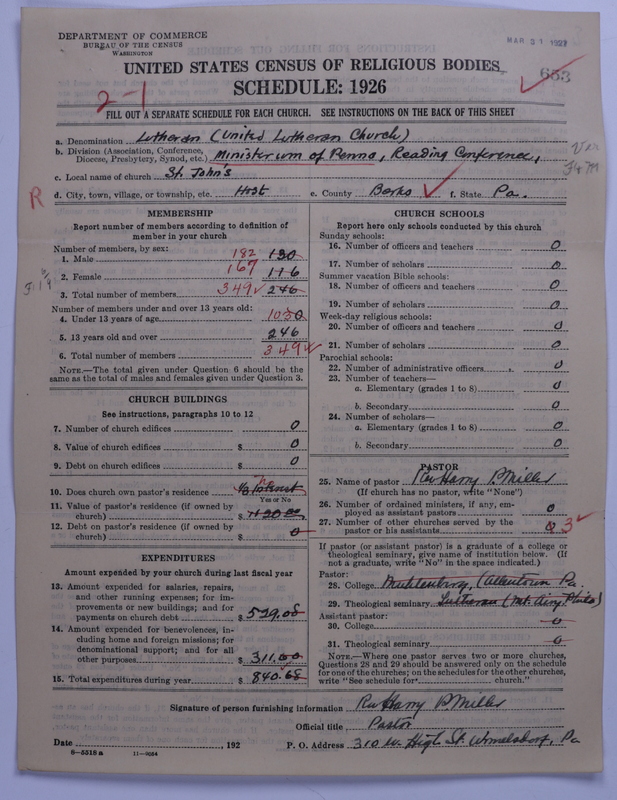 DEPARTMENT OF COMMERCE
BUREAU OF THE CENSUS
WASHINGTON
MAR 31 1927
UNITED STATES CENSUS OF RELIGIOUS BODIES
653
SCHEDULE: 1926
2-1
FILL OUT A SEPARATE SCHEDULE FOR EACH CHURCH. SEE INSTRUCTIONS ON THE BACK OF THIS SHEET
a. Denomination Lutheran (United Lutheran Church)
b. Division (Association, Conference, Diocese, Presbytery, Synod, etc.) Ministerium of Penna, Reading Conference,
c. Local name of church St. John's
R
d. City, town, village, or township, etc. Host e. County Berks f. State Pa.
MEMBERSHIP
Report number of members according to definition of
member in your church
Number of members, by sex:
1. Male 182 130
2. Female 167 116
3. Total number of members 349 246
Number of members under and over 13 years old:
4. Under 13 years of age 103 0
5. 13 years old and over 246
6. Total number of members 349
NOTE.—The total given under Question 6 should be
same as the total of males and females given under Question 3.
CHURCH BUILDINGS
See instructions, paragraphs 10 to 12
7. Number of church edifices 0
8. Value of church edifices $ 0
9. Debt on church edifices $ 0
10. Does church own pastor's residence 1/3 Interest
Yes or No
11. Value of pastor's residence (if owned by
church) $
12. Debt on pastor's residence (if owned by
church) $ 0
EXPENDITURES
Amount expended by your church during last fiscal year
13. Amount expended for salaries, repairs,
and other running expenses; for im-
provements or new buildings; and for
payments on church debt $ 529.08
14. Amount expended for benevolences, in-
cluding home and foreign missions; for
denominational support; and for all
other purposes $ 311.60
15. Total expenditures during year $ 840.68
CHURCH SCHOOLS
Report here only schools conducted by this church
Sunday schools:
16. Number of officers and teachers 0
17. Number of scholars 0
Summer vacation Bible schools:
18. Number of officers and teachers 0
19. Number of scholars 0
Week-day religious schools:
20. Number of officers and teachers 0
21. Number of scholars 0
Parochial schools:
22. Number of administrative officers 0
23. Number of teachers—
a. Elementary (grades 1 to 8) 0
b. Secondary 0
24. Number of scholars—
a. Elementary (grades 1 to 8) 0
b. Secondary 0
PASTOR
25. Name of pastor Rev Harry P. Miller
(If church has no pastor, write "None")
26. Number of ordained ministers, if any, em-
ployed as assistant pastors 0
27. Number of other churches served by the
pastor or his assistants 0 3
If pastor (or assistant pastor) is a graduate of a college or
theological seminary, give name of institution below. (If
not a graduate, write "No" in the space indicated.)
Pastor:
28. College Muhlenburg, (Allentown Pa.
29. Theological seminary Lutheran (Mt. Airy, Phila)
Assistant pastor:
30. College 0
31. Theological seminary 0
NOTE.—Where one pastor serves two or more churches,
Questions 28 and 29 should be answered only on the schedule
for one of the churches; on the schedules for the other churches,
write "See schedule for church."
Signature of person furnishing information Rev Harry P Miller
Official title Pastor
Date , 192 P. O. Address 310 W. High St. Womelsdorf, Pa
6-5518 a 11-9054